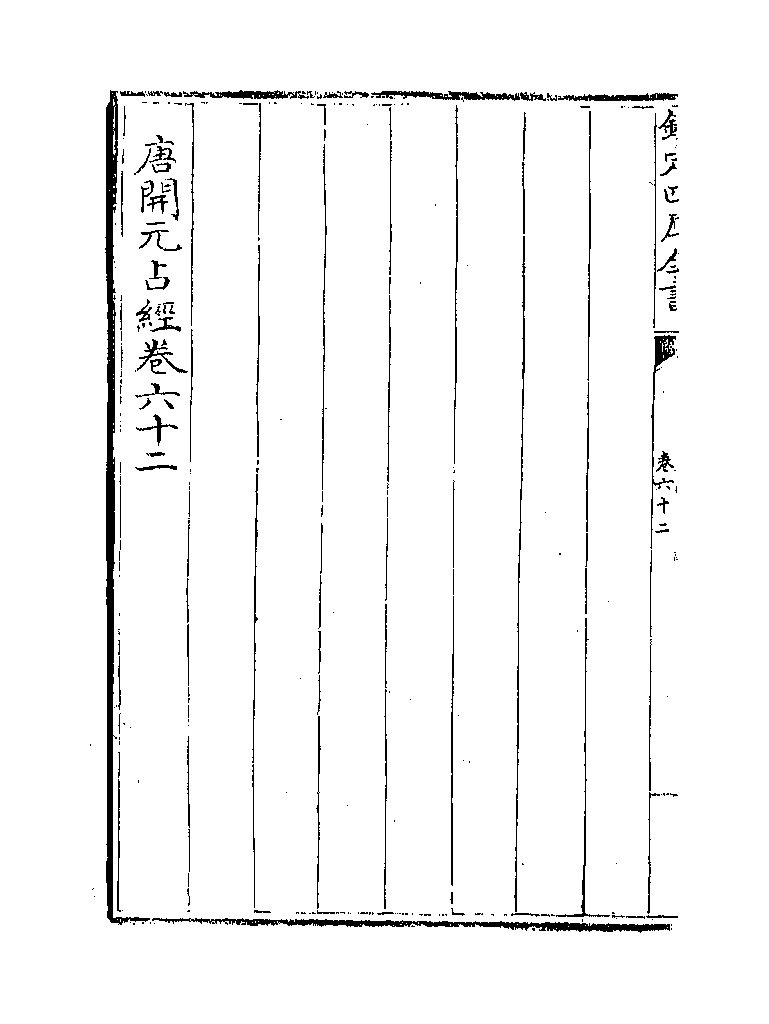 欽定四庫全書
卷六十二
唐開元占經卷六十二